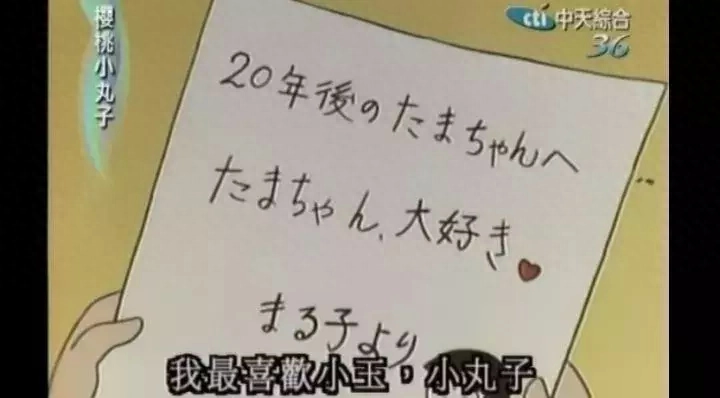 櫻桃小丸子
cti 中天綜合
36
20年後のたまちゃんへ
たまちゃん、大好き
まる子より
我最喜歡小玉，小丸子